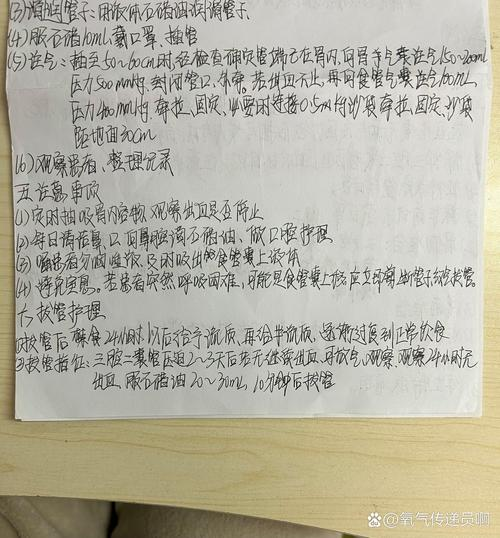 (3)润滑管子:用液体石蜡油润滑管子
(4)服石蜡10ml,戴口罩,插管
(5)注气:插至50~60cm时,经检查确定管端已在胃内,向胃等气囊注气150~200ml
压力500mm均,封闭管口,牵。若出血不止,再向食管气囊注气100ml,
压力400mm均,牵拉、固定,必要时连接0.5m均沙袋牵拉、固定、沙袋
距地面30cm
(6)观察患者,整理记录
五 注意事项
(1)定时抽吸胃内容物,观察出血是否停止
(2)每日清洁鼻、口向鼻腔滴石蜡油,做口腔护理
(3)嘱患者勿咽唾液,及时吸出食管囊上液体
(4)避免窒息。若患者突然呼吸困难,可能是食管囊上移,应立即剪断管子,拔管。
六 拔管护理
①拔管后禁食24小时,以后给予流质,再给半流质,逐渐过度到正常饮食
②拔管指征:三腔二囊管压迫2~3天后若无继续出血,可放气,观察,观察24小时无
出血,服石蜡油20~30ml,10分钟后拔管
@氧气传递员啊